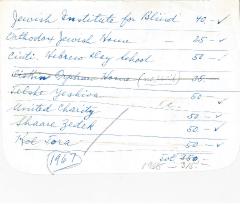 Jewish Institute for Blind 40.- ✓
Orthodox Jewish Home 25 - ✓
Cinti. Hebrew Day School 50 - ✓
Orphan Home 25 -
Telshe Yeshiva 50. -
United Charity
Shaare Zedek 50. - ✓
Kol Tora 50 - ✓
1967